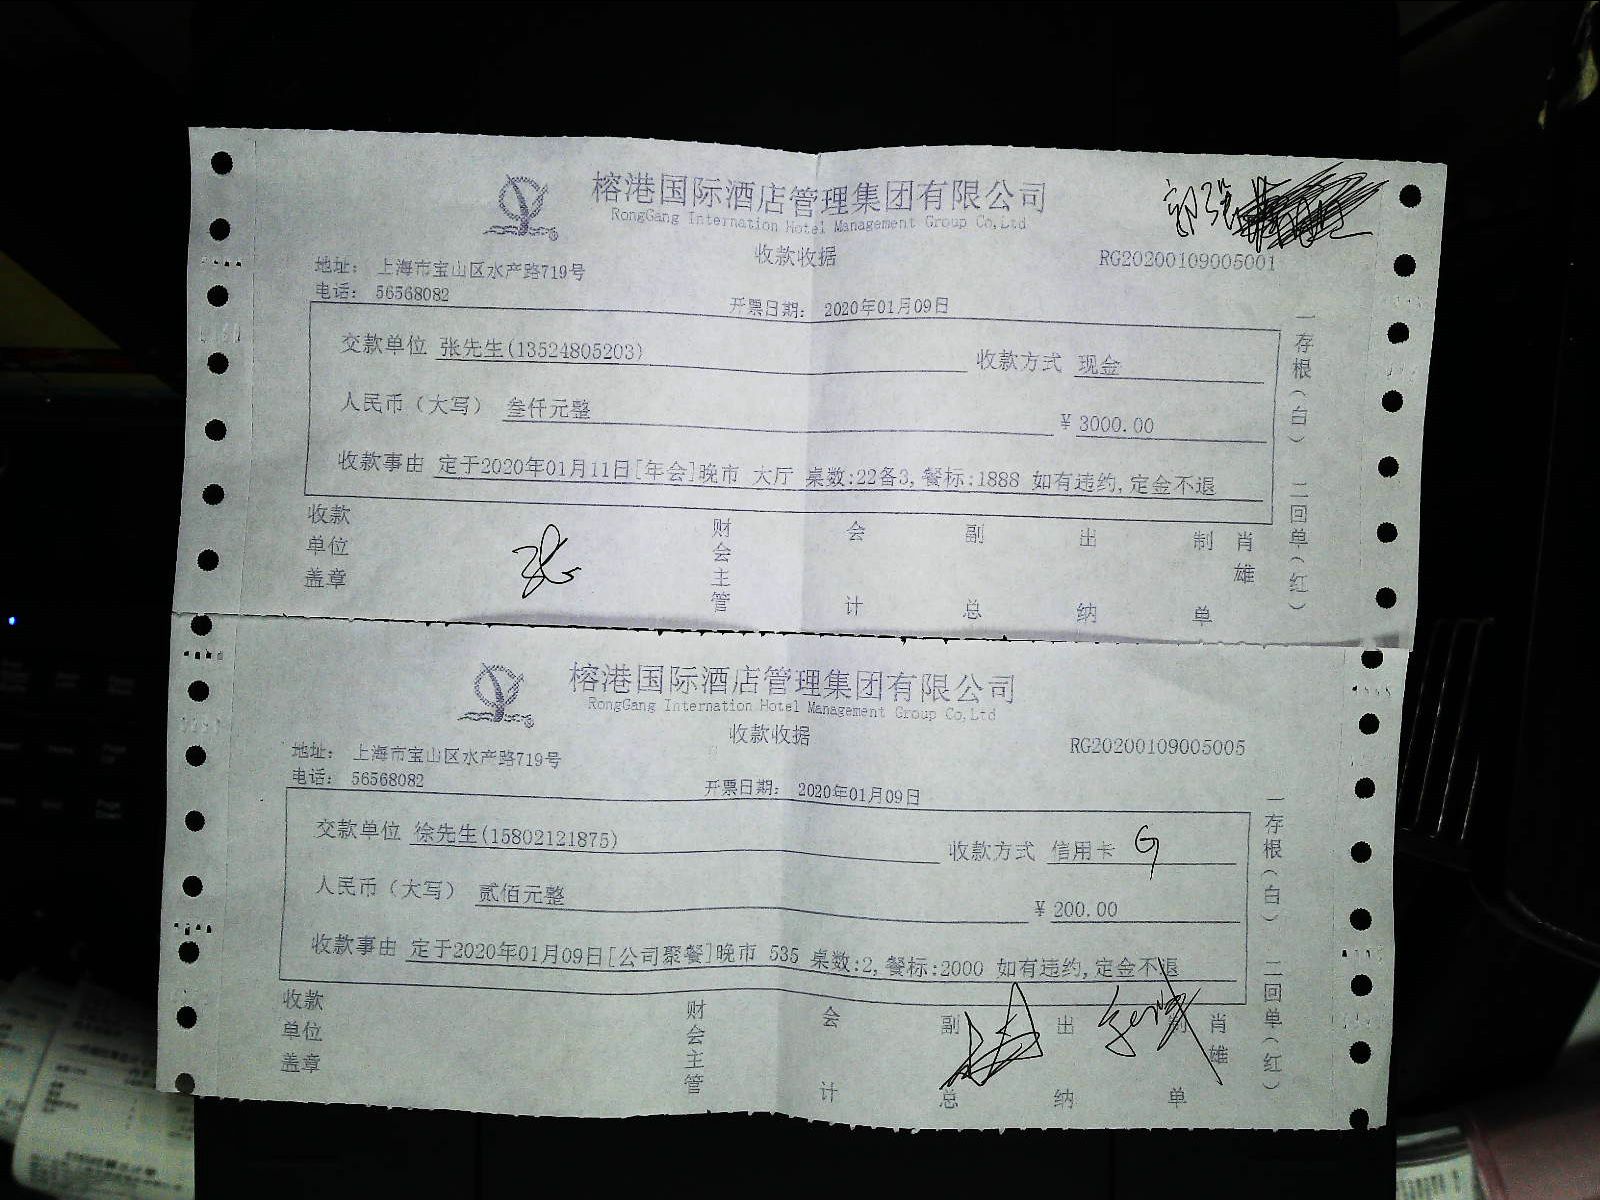 榕港国际酒店管理集团有限公司
RongGang Internation Hotel Management Group Co,Ltd
郭强
收款收据
RG20200109005001
地址： 上海市宝山区水产路719号
电话： 56568082
开票日期： 2020年01月09日
交款单位 张先生(13524805203) 收款方式 现金
人民币（大写） 叁仟元整 ¥ 3000.00
收款事由 定于2020年01月11日[年会]晚市 大厅 桌数:22备3,餐标:1888 如有违约,定金不退
一存根（白） 二回单（红）
收款单位盖章 财会主管 会计 副总 出纳 制单 肖雄
榕港国际酒店管理集团有限公司
RongGang Internation Hotel Management Group Co,Ltd
收款收据
RG20200109005005
地址： 上海市宝山区水产路719号
电话： 56568082
开票日期： 2020年01月09日
交款单位 徐先生(15802121875) 收款方式 信用卡 G
人民币（大写） 贰佰元整 ¥ 200.00
收款事由 定于2020年01月09日[公司聚餐]晚市 535 桌数:2,餐标:2000 如有违约,定金不退
一存根（白） 二回单（红）
收款单位盖章 财会主管 会计 副总 出纳 制单 肖雄